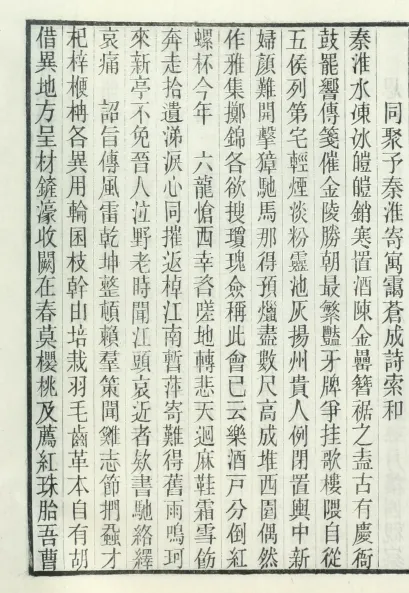 同聚予秦淮寄寓靄蒼成詩索和
秦淮水凍冰皚皚銷寒置酒陳金罍簪裾之盍古有慶衙
鼓罷響傳箋催金陵勝朝最繁豔牙牌爭挂歌樓隈自從
五侯列第宅輕煙淡粉靈池灰揚州貴人例閉置輿中新
婦顏難開擊獐馳馬那得預爝盡數尺高成堆西園偶然
作雅集擲錦各欲搜瓊瑰僉稱此會已云樂酒戸分倒紅
螺杯今年　六龍愴西幸呇嗟地轉悲天迴麻鞋霜雪飭
奔走拾遺涕淚心同摧返棹江南暫萍寄難得舊雨鳴珂
來新亭不免晉人泣野老時聞江頭哀近者欸書馳絡繹
哀痛　詔旨傳風雷乾坤整頓賴羣策聞雞志節捫蝨才
杞梓楩柟各異用輪囷枝幹由培栽羽毛齒革本自有胡
借異地方呈材鏟濠收闕在春莫櫻桃及薦紅珠胎吾曹